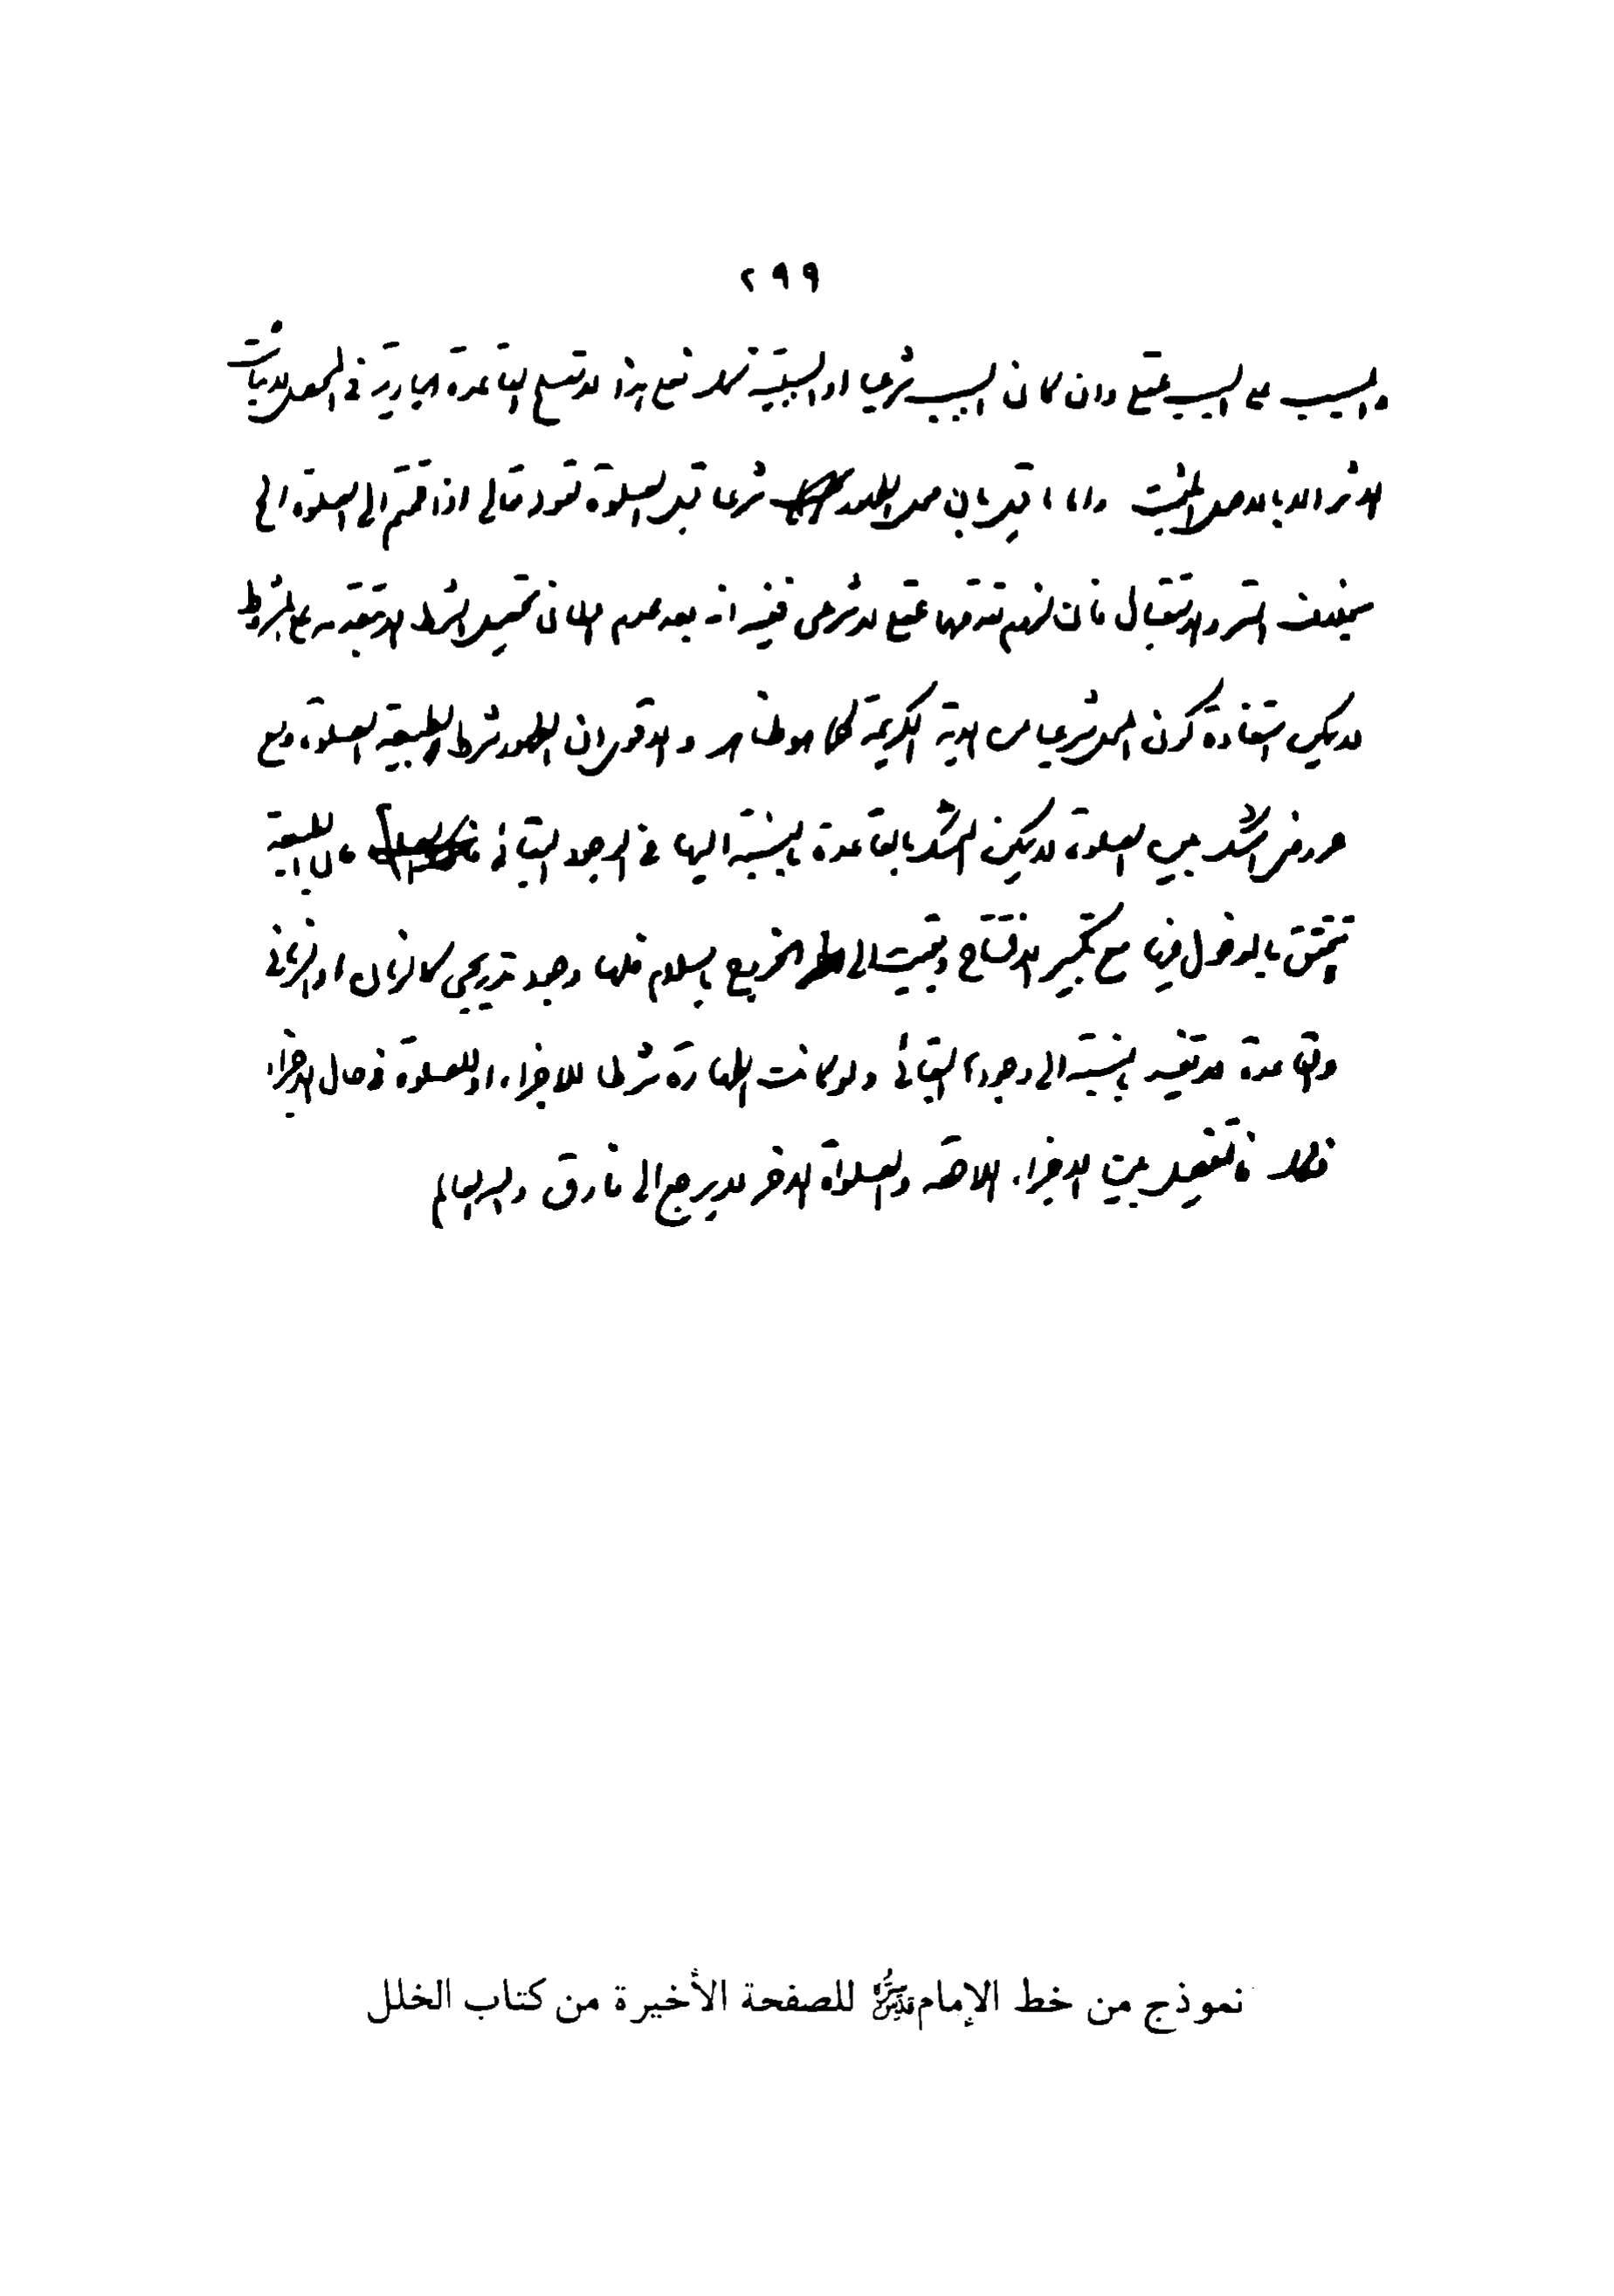 ٢٩٩
والمسبب على السبب عقلي وان كان السبب شرعيا او السببية كذلك فمع هذا لا تصلح القاعدة الجارية في المحل لاثبات
الاثر الا بالاصل المثبت واما ما قيل بان محل الطهور شرعا قبل الصلوة لقوله تعالى اذا قمتم الى الصلوة الخ
بخلاف الستر والاستقبال فان لزوم تقدمهما عقلي لا شرعي ففيه انه بعد عدم امكان تحصيل الشرط الا بتقدمه على المشروط
لا يمكن استفادة كون المحل شرعيا من الاية الكريمة كما هو ظاهر والاقوى ان الطهور شرط لطبيعة الصلوة ومع
عروض الشك بين الصلوة لا يمكن احراز الشرط بالقاعدة بالنسبة اليها في الوجود البقائي فان الطبيعة
تتحقق بالدخول فيها مع تكبير الافتتاح وبقيت الى الخروج بالسلام فلها وجود تدريجي كالزمان والزماني
والقاعدة لا تفيد بالنسبة الى وجودها البقائي ولو كانت الطهارة شرطا للاجزاء او للصلوة في حال الاجزاء
فكذلك فالتفصيل بين الاجزاء اللاحقة والصلواة الاخر لا يرجع الى فارق والله العالم
نموذج من خط الإمام قدس سره للصفحة الأخيرة من كتاب الخلل